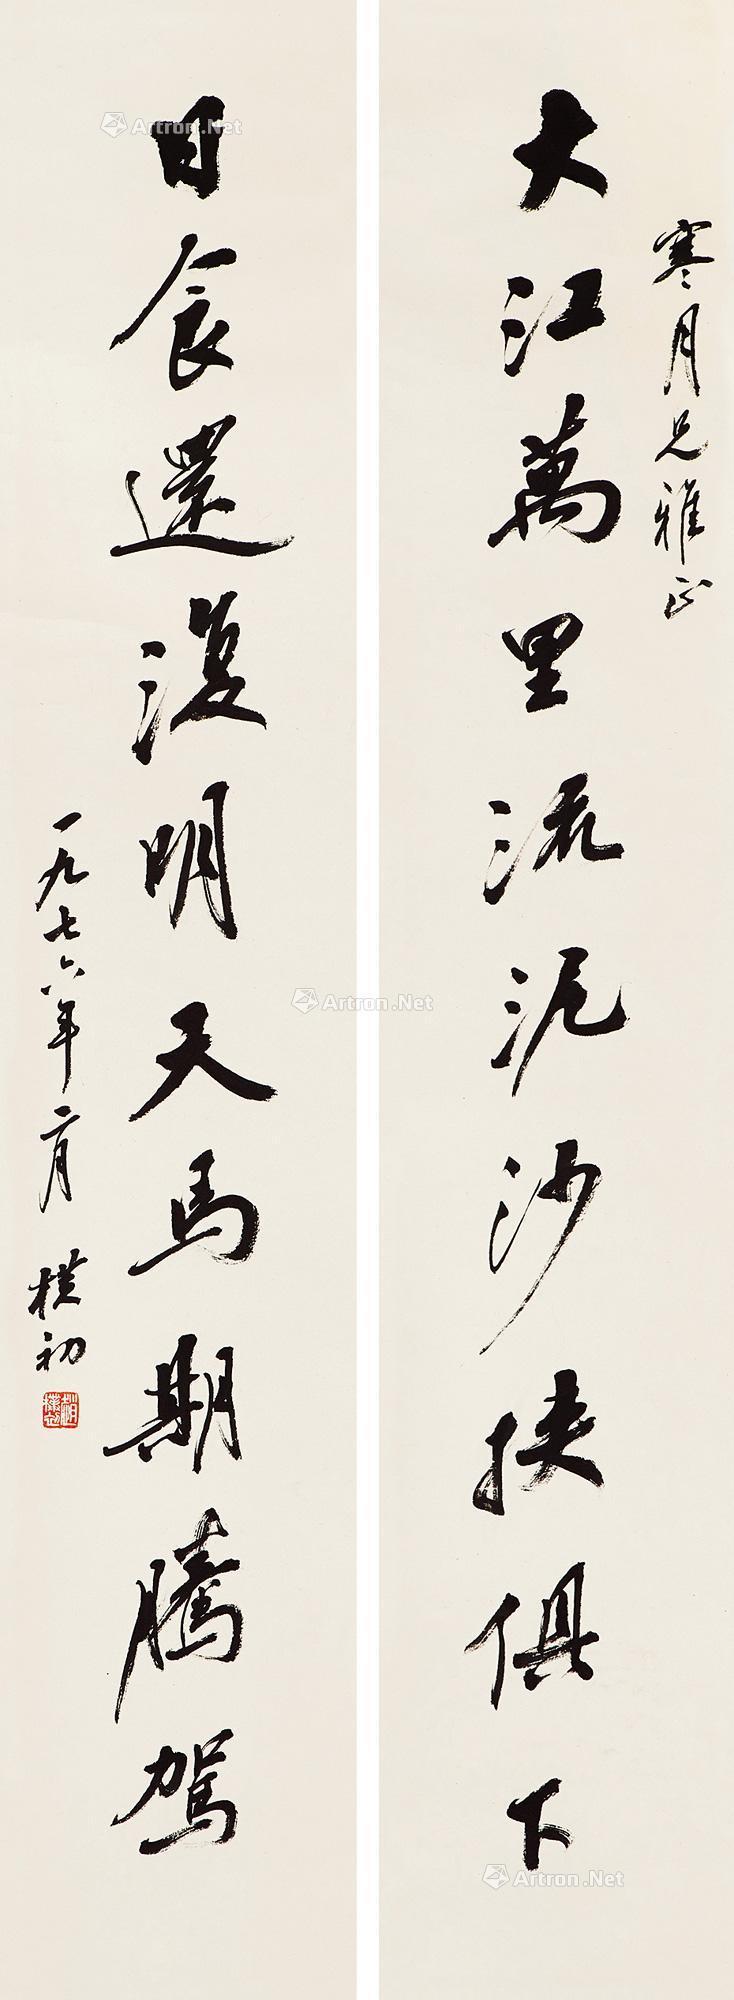 寒月兄雅正
大江萬里流泥沙挟俱下
日食還復明天馬期騰駕
一九七六年二月 樸初
趙樸初
Artron.Net
Artron.Net
Artron.Net